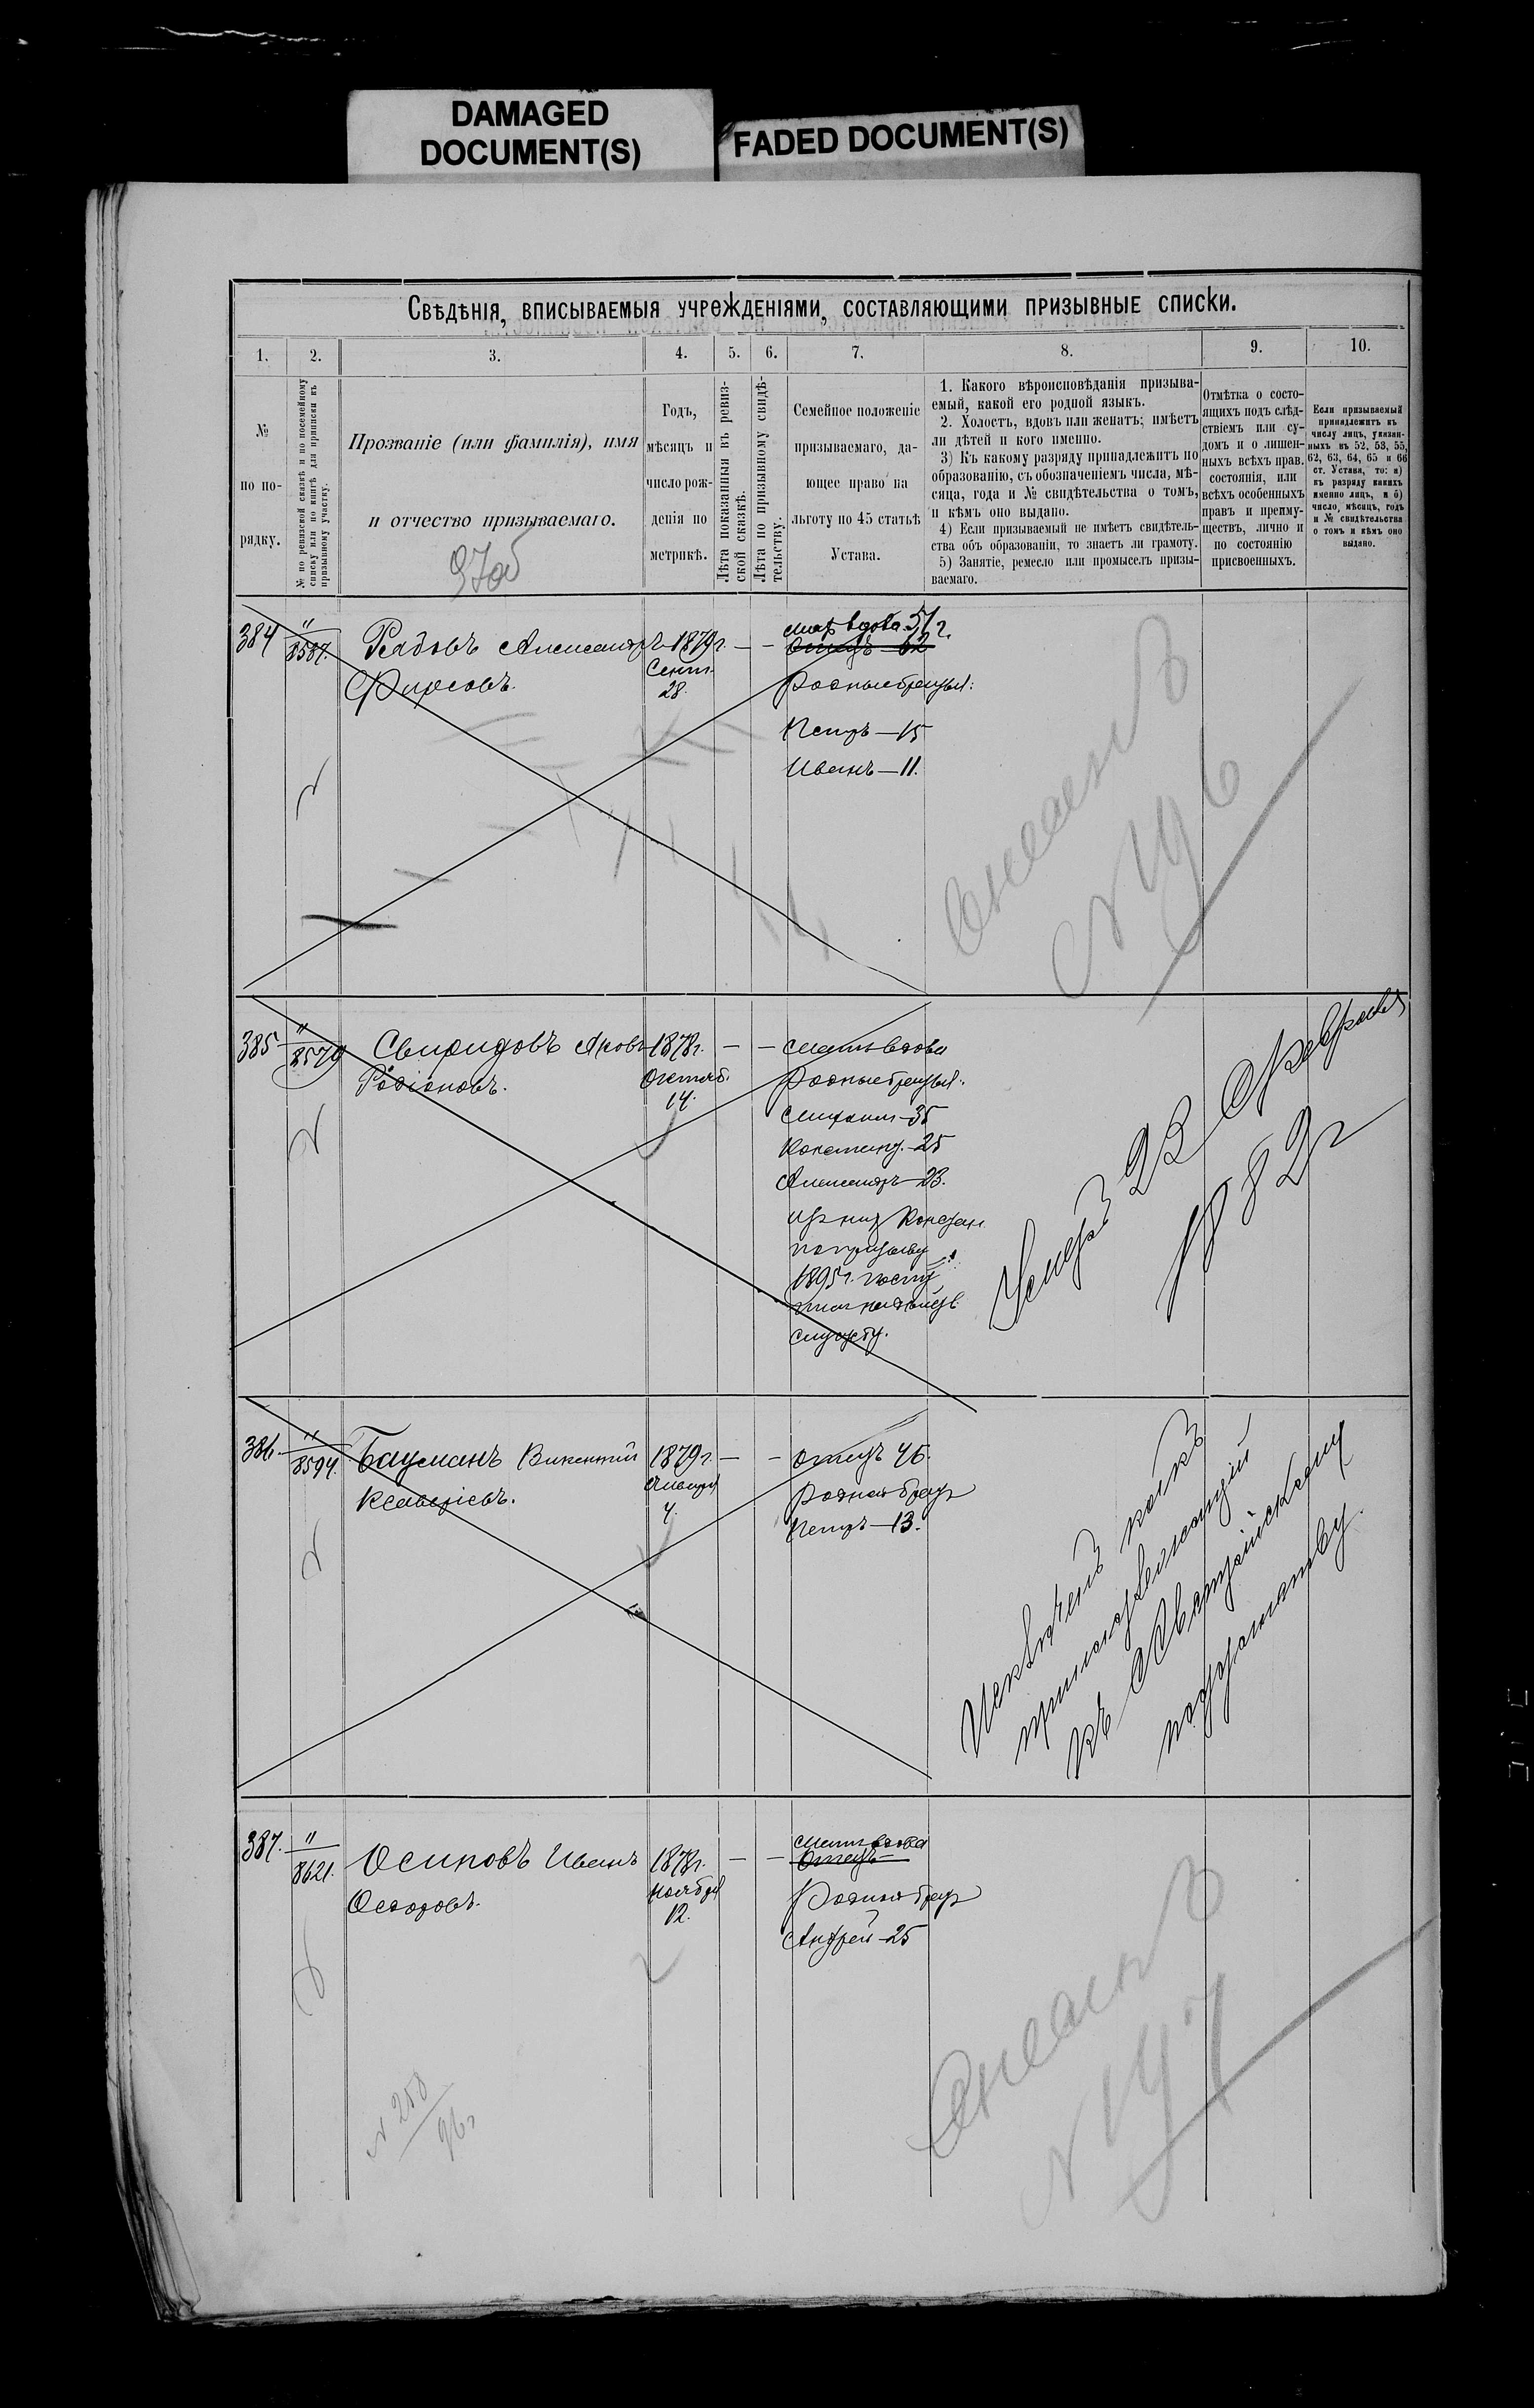 DAMAGED
DOCUMENT(S)
FADED DOCUMENT(S)
Свѣдѣнія, вписываемыя учрежденіями, составляющими призывные списки.
1.
2.
3.
4.
5.
6.
7.
8.
9.
10.
№
по по-
рядку.
№ по ревизской сказкѣ и по посемейному
списку или по книгѣ для приписки къ
призывному участку.
Прозваніе (или фамилія), имя
и отчество призываемаго.
Годъ,
мѣсяцъ и
число рож-
денія по
метрикѣ.
Лѣта показанныя въ ревиз-
ской сказкѣ.
Лѣта по призывному свидѣ-
тельству.
Семейное положеніе
призываемаго, да-
ющее право на
льготу по 45 статьѣ
Устава.
1. Какого вѣроисповѣданія призыва-
емый, какой его родной языкъ.
2. Холостъ, вдовъ или женатъ; имѣетъ
ли дѣтей и кого именно.
3) Къ какому разряду принадлежитъ по
образованію, съ обозначеніемъ числа, мѣ-
сяца, года и № свидѣтельства о томъ,
и кѣмъ оно выдано.
4) Если призываемый не имѣетъ свидѣтель-
ства объ образованіи, то знаетъ ли грамоту.
5) Занятіе, ремесло или промыселъ призы-
ваемаго.
Отмѣтка о состо-
ящихъ подъ слѣд-
ствіемъ или су-
домъ и о лишен-
ныхъ всѣхъ прав.
состоянія, или
всѣхъ особенныхъ
правъ и преиму-
ществъ, лично и
по состоянію
присвоенныхъ.
Если призываемый
принадлежитъ къ
числу лицъ, указан-
ныхъ въ 52, 53, 55,
62, 63, 64, 65 и 66
ст. Устава, то: а)
къ разряду какихъ
именно лицъ, и б)
число, мѣсяцъ, годъ
и № свидѣтельства
о томъ и кѣмъ оно
выдано.
384 " 8587. Рядовъ Александръ 1879 г. — — мать вдова 51 г.
Отецъ 62
Фирсовъ. Сент. 28. Родные братья:
Петръ — 15
Иванъ — 11.
№ 196
385 " 8579 Свиридовъ Яковъ 1878 г. — — мать вдова
Родіоновъ. Октяб. 14. Родные братья:
Михаил — 35
Констант. — 25
Александръ — 23.
по призыву
1895 г.
службу.
Умеръ 23 Февраля
1882 г
386. " 8594. Бауманъ Викентій 1879 г. — — отецъ 46.
Ксаверіевъ. Января 4. Родной братъ
Петръ — 13.
Исключенъ какъ
принадлежащій
къ Австрійскому
подданству.
387. " 8621. Осиповъ Иванъ 1878 г. — — мать вдова
Отецъ
Ѳедоровъ. Ноября 12. Родной братъ
Андрей — 25
№ 197
№ 250
96 г